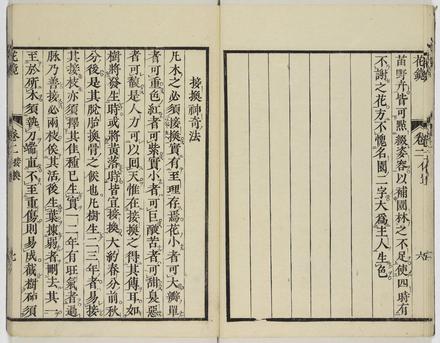 花鏡 卷二
苗野卉皆可點綴姿容以補園林之不足使四時有
不謝之花方不愧名園二字大為主人生色
接換神奇法
凡木之必須接換實有至理存焉花小者可大瓣單
者可重色紅者可紫實小者可巨酸苦者可甜臭惡
者可馥是人力可以回天惟在接換之得其傳耳如
樹將發生時或將黃落時皆宜接換大約春分前秋
分後是其脫胎換骨之候也凡樹生二三年者易接
其接枝亦須擇其佳種已生實一二年有旺氣者過
脉乃善接必兩枝俟其活後生葉揀弱者刪去其一
至於斫木須執刀端直不至重傷則易成截樹砧須
花鏡 卷二 接換